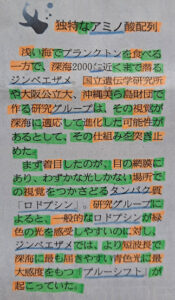 独特なアミノ酸配列
浅い海でプランクトンを食べる
一方で、深海2000㍍近くまで潜る
ジンベエザメ。国立遺伝学研究所
や大阪公立大、沖縄美ら島財団で
作る研究グループは、その視覚が
深海に適応して進化した可能性が
あるとして、その仕組みを突き止
めた。
まず着目したのが、目の網膜に
あり、わずかな光しかない場所で
の視覚をつかさどるタンパク質
「ロドプシン」。研究グループに
よると、一般的なロドプシンが緑
色の光を感受しやすいのに対し、
ジンベエザメでは、より短波長で
深海に最も届きやすい青色光に最
大感度をもつ「ブルーシフト」が
起こっていた。